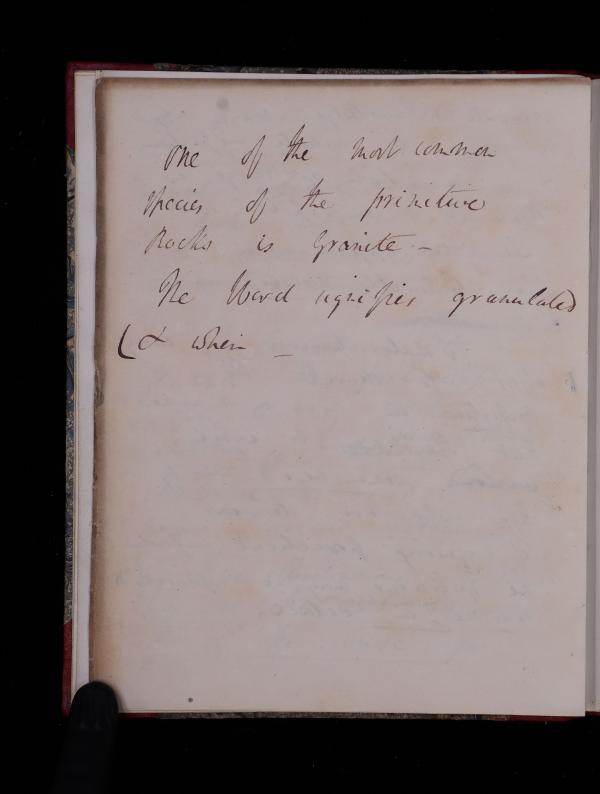 One of the most common
species of the primitive
Rocks is Granite. –
The Word signifies granulated
( & when –